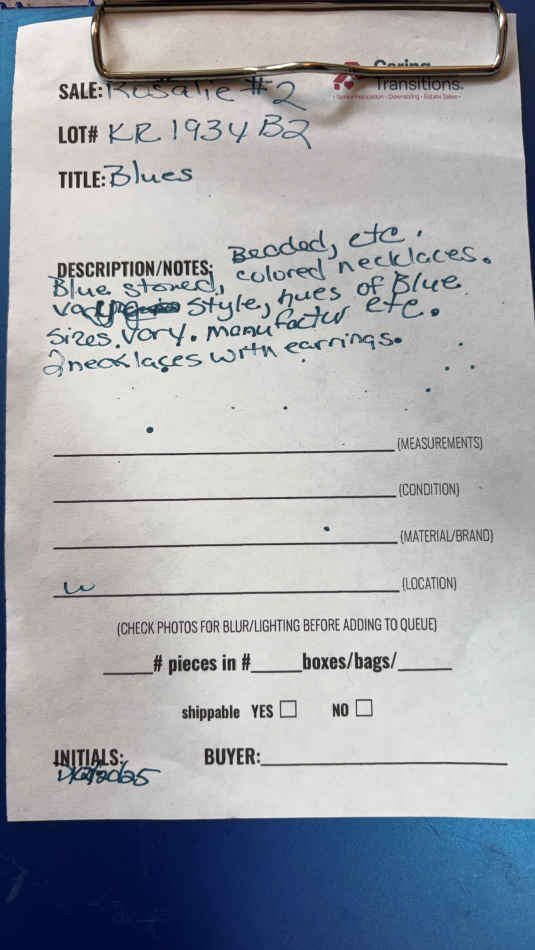 Caring
Transitions.
Senior Relocation • Downsizing • Estate Sales
SALE: Rosalie #2
LOT# KR 1934 B2
TITLE: Blues
DESCRIPTION/NOTES: Beaded, etc.
Blue stoned, colored necklaces.
Vary style, hues of Blue
sizes. Vary. manufactur etc.
2 necklaces with earrings.
(MEASUREMENTS)
(CONDITION)
(MATERIAL/BRAND)
w (LOCATION)
(CHECK PHOTOS FOR BLUR/LIGHTING BEFORE ADDING TO QUEUE)
_____# pieces in #_____boxes/bags/_____
shippable YES ☐ NO ☐
INITIALS: BUYER: